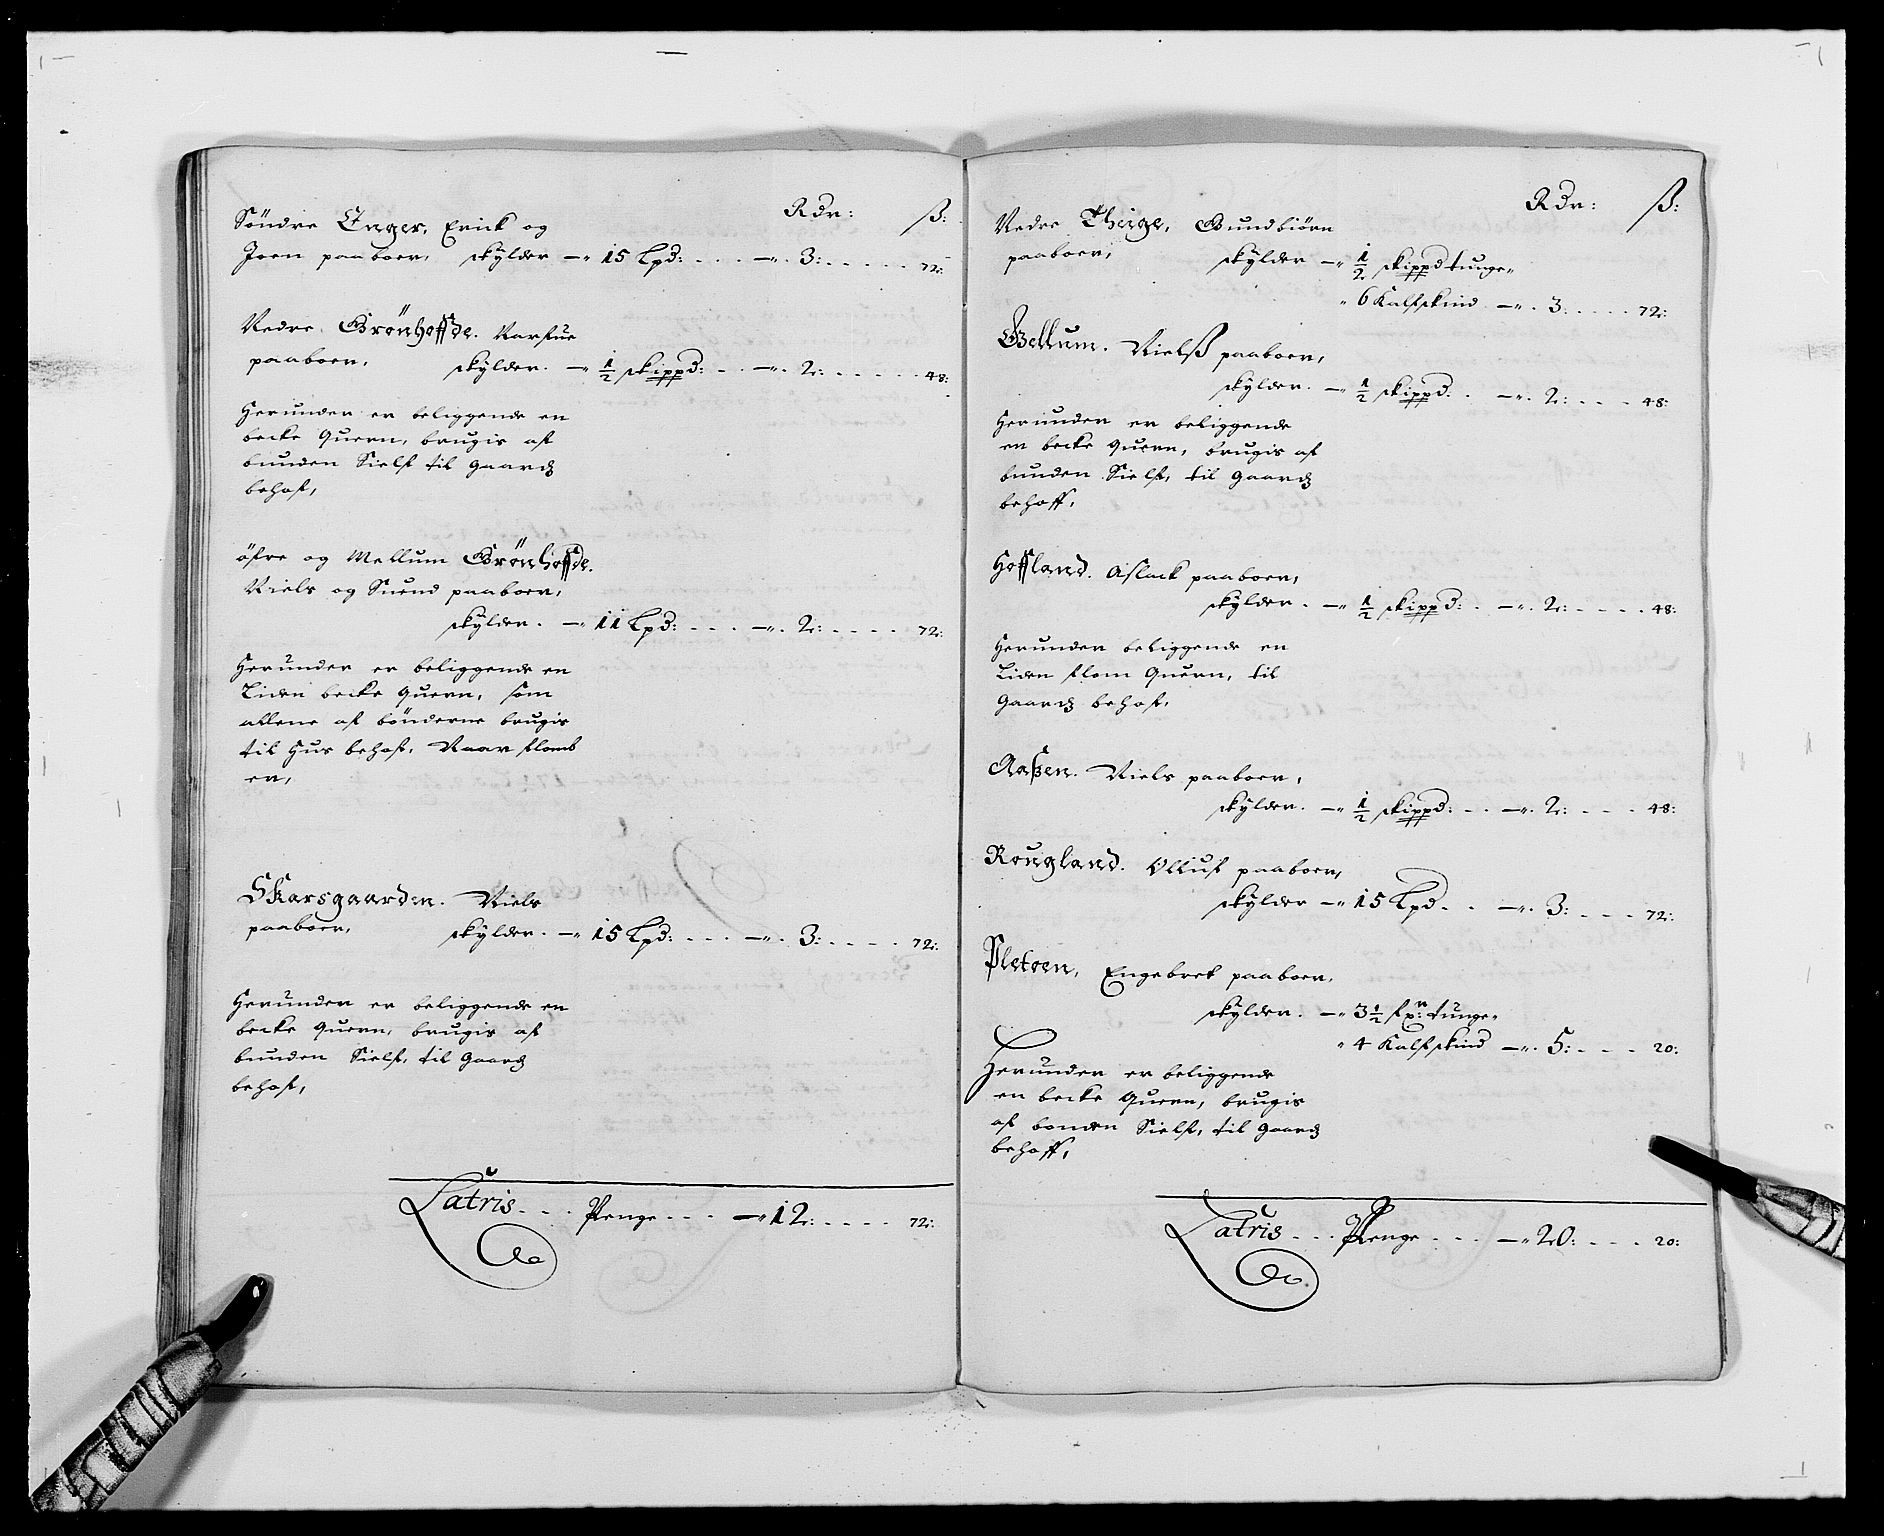 Rdr: ß:
Söndre Enger, Erick og
Joen paaboer, skÿlder —" 15 Lpd: . . . —". 3: . . . . . 72:
Nedre Grönhoffde. Narfue
paaboer, skÿlder. —" 1/2 skippd: . . —". 2: . . . . . 48:
Herunder er beliggende en
becke Quern, brugis af
bunden Sielf til Gaardz
behof,
öfre og Mellum Grönhoffde.
Niels og Suend paaboer,
skÿlder. —" 11 Lpd: . . . —". 2: . . . . 72:
Herunder er beliggende en
Liden becke Quern, som
allene af bönderne brugis
til Hus behof, Naar flomb
er,
Skarsgaarden. Niels
paaboer, skÿlder. —" 15 Lpd: . . . —". 3: . . . . 72:
Herunder er beliggende en
becke Quern, brugis af
bunden Sielf, til Gaardz
behof,
Latris . . . Penge . . . —" 12: . . . . 72:
Rdr: ß:
Nedre Theige, Gundbiörn
paaboer, skÿlder —" 1/2 skippd tunge"
" 6 Kalfskind —". 3: . . . . 72:
Gellum. Nielß paaboer,
skÿlder. —" 1/2 skippd: . —". 2: . . . 48:
Herunder er beliggende
en becke Quern, brugis af
bunden Sielf, til Gaardz
behoff,
Hoffland. Aslack paaboer,
skÿlder. —" 1/2 skippd: . —". 2: . . . . 48:
Herunder beliggende en
Liden flom Quern, til
Gaardz behof,
Aaßen. Niels paaboer,
skÿlder. —" 1/2 skippd: . . —". 2: . . . 48:
Rougland. Olluf paaboer,
skÿlder —" 15 Lpd . . —". 3: . . . 72:
Pletoen, Engebret paaboer,
skÿlder. —" 3 1/2 fr: tunge"
" 4 Kalfskind —". 5: . . . 20:
Herunder er beliggende
en becke Quern, brugis
af bonden Sielf, til Gaardz
behoff,
Latris . . . Penge . . . —" 20: . . . 20: